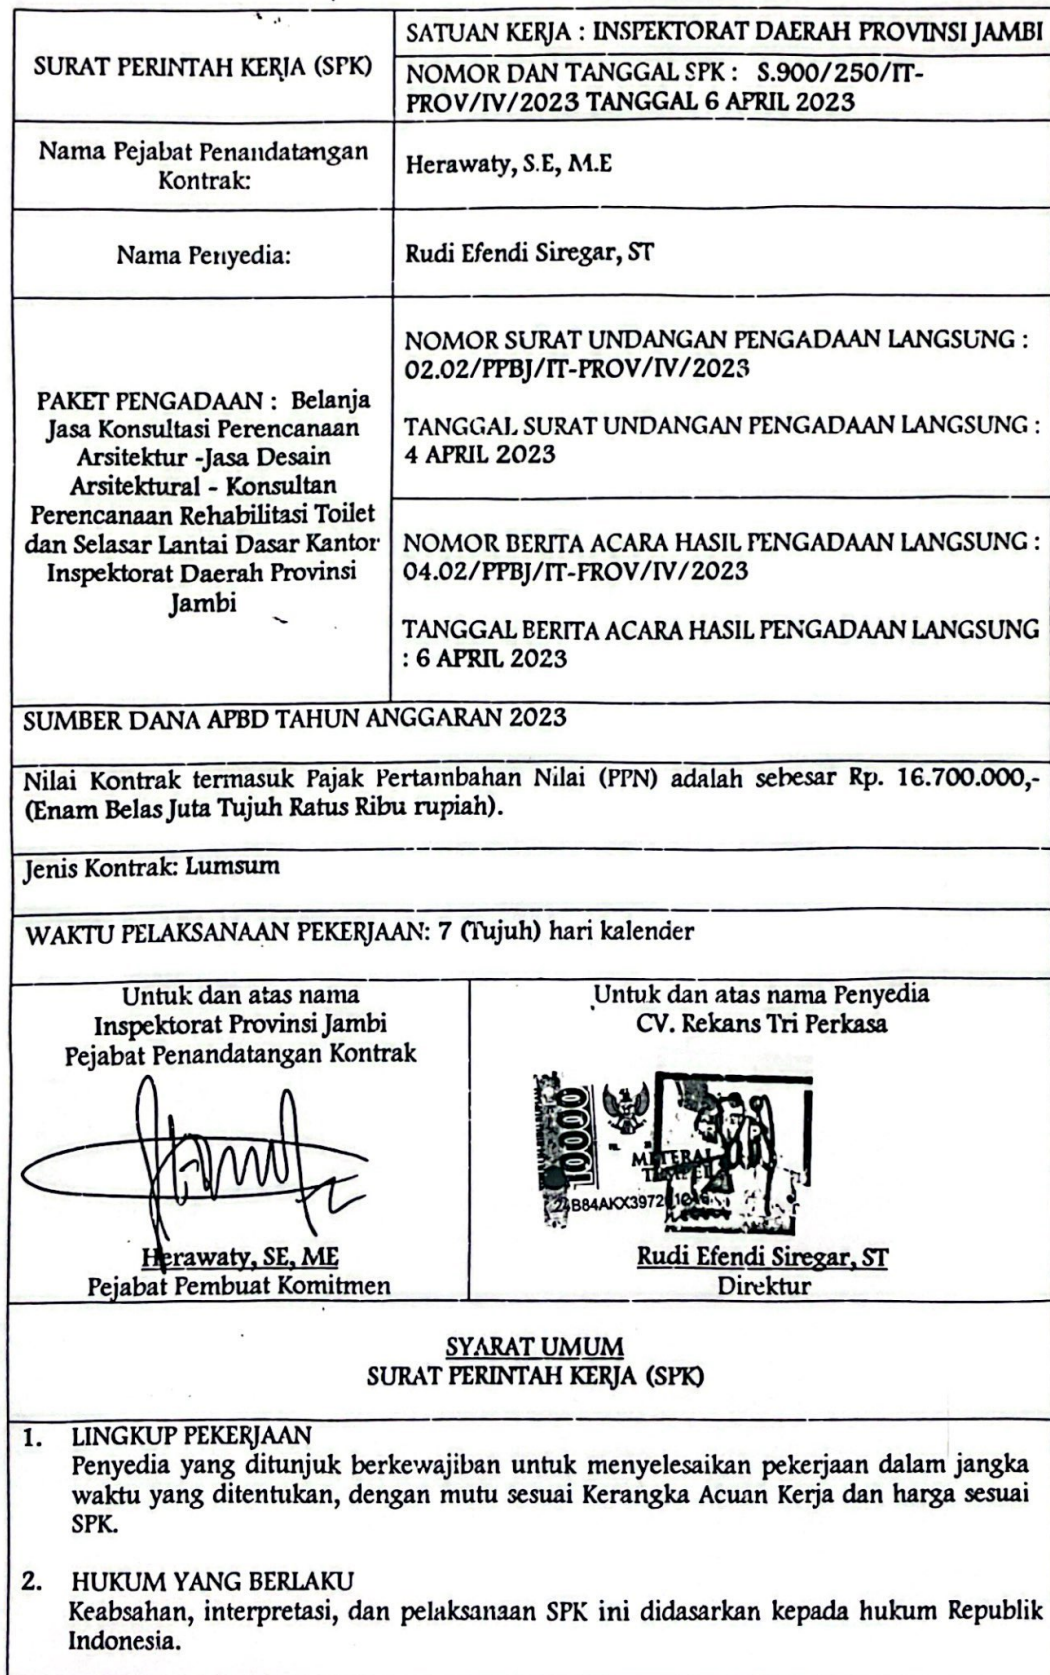 SURAT PERINTAH KERJA (SPK)
SATUAN KERJA : INSPEKTORAT DAERAH PROVINSI JAMBI
NOMOR DAN TANGGAL SPK : S.900/250/IT-
PROV/IV/2023 TANGGAL 6 APRIL 2023
Nama Pejabat Penandatangan
Kontrak:
Herawaty, S.E, M.E
Nama Penyedia:
Rudi Efendi Siregar, ST
PAKET PENGADAAN : Belanja
Jasa Konsultasi Perencanaan
Arsitektur -Jasa Desain
Arsitektural - Konsultan
Perencanaan Rehabilitasi Toilet
dan Selasar Lantai Dasar Kantor
Inspektorat Daerah Provinsi
Jambi
NOMOR SURAT UNDANGAN PENGADAAN LANGSUNG :
02.02/PPBJ/IT-PROV/IV/2023
TANGGAL SURAT UNDANGAN PENGADAAN LANGSUNG :
4 APRIL 2023
NOMOR BERITA ACARA HASIL PENGADAAN LANGSUNG :
04.02/PPBJ/IT-PROV/IV/2023
TANGGAL BERITA ACARA HASIL PENGADAAN LANGSUNG
: 6 APRIL 2023
SUMBER DANA APBD TAHUN ANGGARAN 2023
Nilai Kontrak termasuk Pajak Pertambahan Nilai (PPN) adalah sebesar Rp. 16.700.000,-
(Enam Belas Juta Tujuh Ratus Ribu rupiah).
Jenis Kontrak: Lumsum
WAKTU PELAKSANAAN PEKERJAAN: 7 (Tujuh) hari kalender
Untuk dan atas nama
Inspektorat Provinsi Jambi
Pejabat Penandatangan Kontrak
Herawaty, SE, ME
Pejabat Pembuat Komitmen
Untuk dan atas nama Penyedia
CV. Rekans Tri Perkasa
10000
METERAI
TEMPEL
Rudi Efendi Siregar, ST
Direktur
SYARAT UMUM
SURAT PERINTAH KERJA (SPK)
1. LINGKUP PEKERJAAN
Penyedia yang ditunjuk berkewajiban untuk menyelesaikan pekerjaan dalam jangka
waktu yang ditentukan, dengan mutu sesuai Kerangka Acuan Kerja dan harga sesuai
SPK.
2. HUKUM YANG BERLAKU
Keabsahan, interpretasi, dan pelaksanaan SPK ini didasarkan kepada hukum Republik
Indonesia.